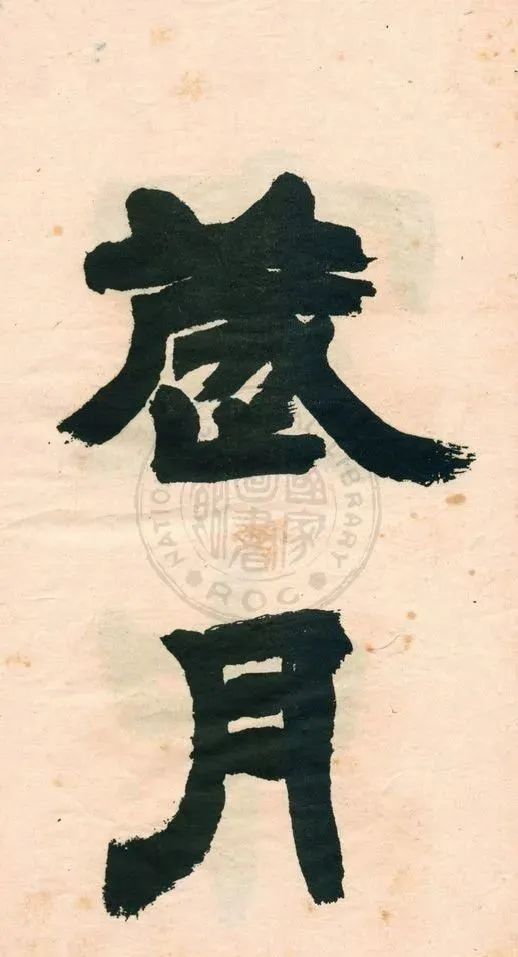 歲
月
國家圖書館
NATIO
LIBRARY
ROC